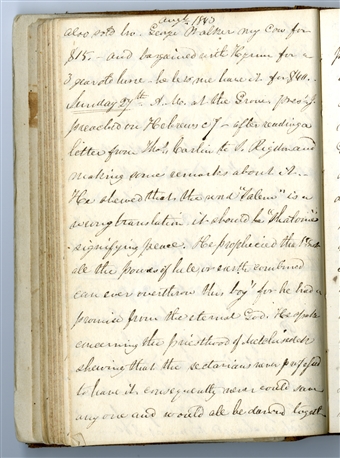 Augt. 1843
also sold bro. George Walker my Cow for
$15.– and bargained with Hyrum for a
3 year old horse – he lets me have it for $40..
Sunday 27th A. M. at the Grove prest J.
preached on Hebrews c 7 – after reading a
letter from Thos. Carlin to S. Rigdon and
making some remarks about it.–
He shewed that the word "Salem" is a
wrong translation it should be "Shalome"
signifying peace. He prophecied
all the powers of hell or earth combined
can ever overthrow this boy" for he had a
promise from the eternal God. He spoke
concerning the priesthood of Melchisedek
shewing that the sectarians never professed
to have it consequently never could save
any one and would all be damned together